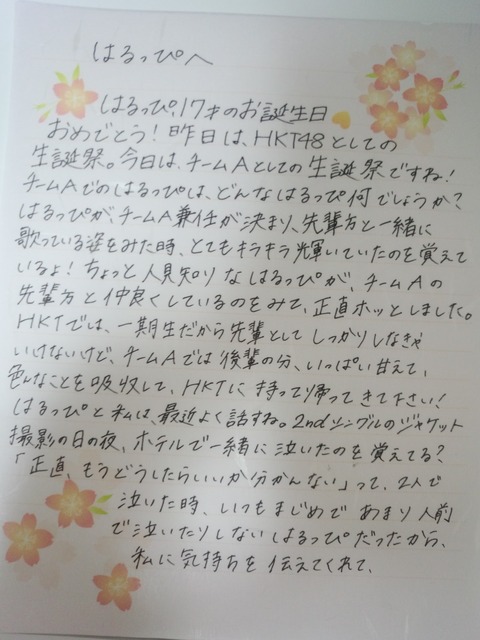 はるっぴへ
はるっぴ、17才のお誕生日
おめでとう！昨日は、HKT48としての
生誕祭。今日は、チームAとしての生誕祭ですね！
チームAでのはるっぴは、どんなはるっぴ何でしょうか？
はるっぴが、チームA兼任が決まり、先輩方と一緒に
歌っている姿をみた時、とてもキラキラ輝いていたのを覚えて
いるよ！ちょっと人見知りなはるっぴが、チームAの
先輩方と仲良くしているのをみて、正直ホッとしました。
HKTでは、一期生だから先輩としてしっかりしなきゃ
いけないけど、チームAでは後輩の分、いっぱい甘えて、
色んなことを吸収して、HKTに持って帰ってきて下さい！
はるっぴと私は、最近よく話すね。2ndシングルのジャケット
撮影の日の夜、ホテルで一緒に泣いたのを覚えてる？
「正直、もうどうしたらいいか分かんない」って、2人で
泣いた時、いつもまじめであまり人前
で泣いたりしないはるっぴだったから、
私に気持ちを伝えてくれて、